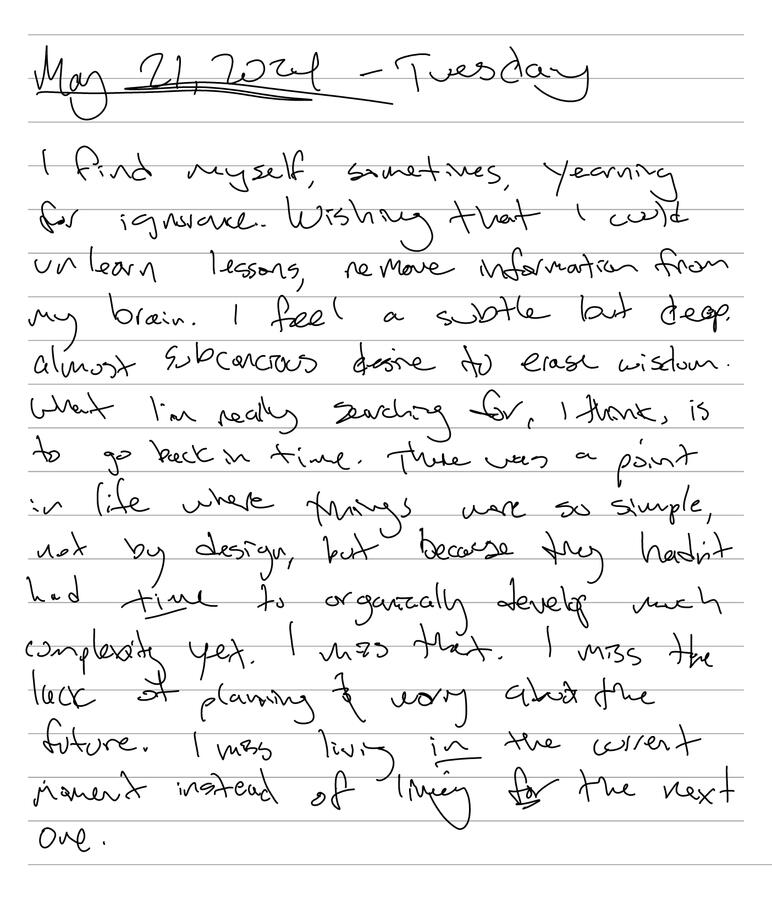 May 21, 2024 - Tuesday
I find myself, sometimes, yearning
for ignorance. Wishing that I could
unlearn lessons, remove information from
my brain. I feel a subtle but deep,
almost subconscious desire to erase wisdom.
What I'm really searching for, I think, is
to go back in time. There was a point
in life where things were so simple,
not by design, but because they hadn't
had time to organically develop much
complexity yet. I miss that. I miss the
lack of planning & worry about the
future. I miss living in the current
moment instead of living for the next
one.